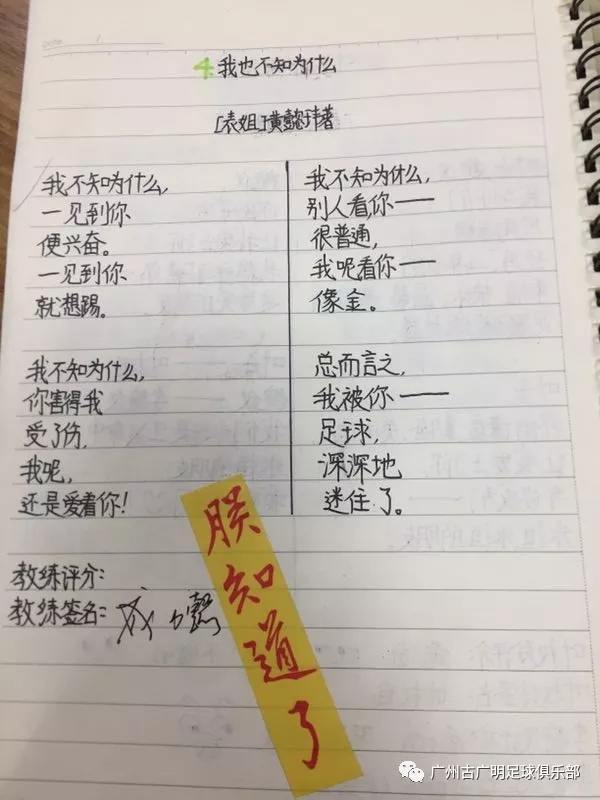 4.我也不知为什么
「表姐」黄懿玮著
我不知为什么,
一见到你
便兴奋。
一见到你
就想踢。
我不知为什么,
你害得我
受了伤,
我呢,
还是爱着你!
我不知为什么,
别人看你——
很普通,
我呢看你——
像金。
总而言之,
我被你——
足球,
深深地
迷住了。
教练评分:
教练签名:
朕知道了
广州古广明足球俱乐部